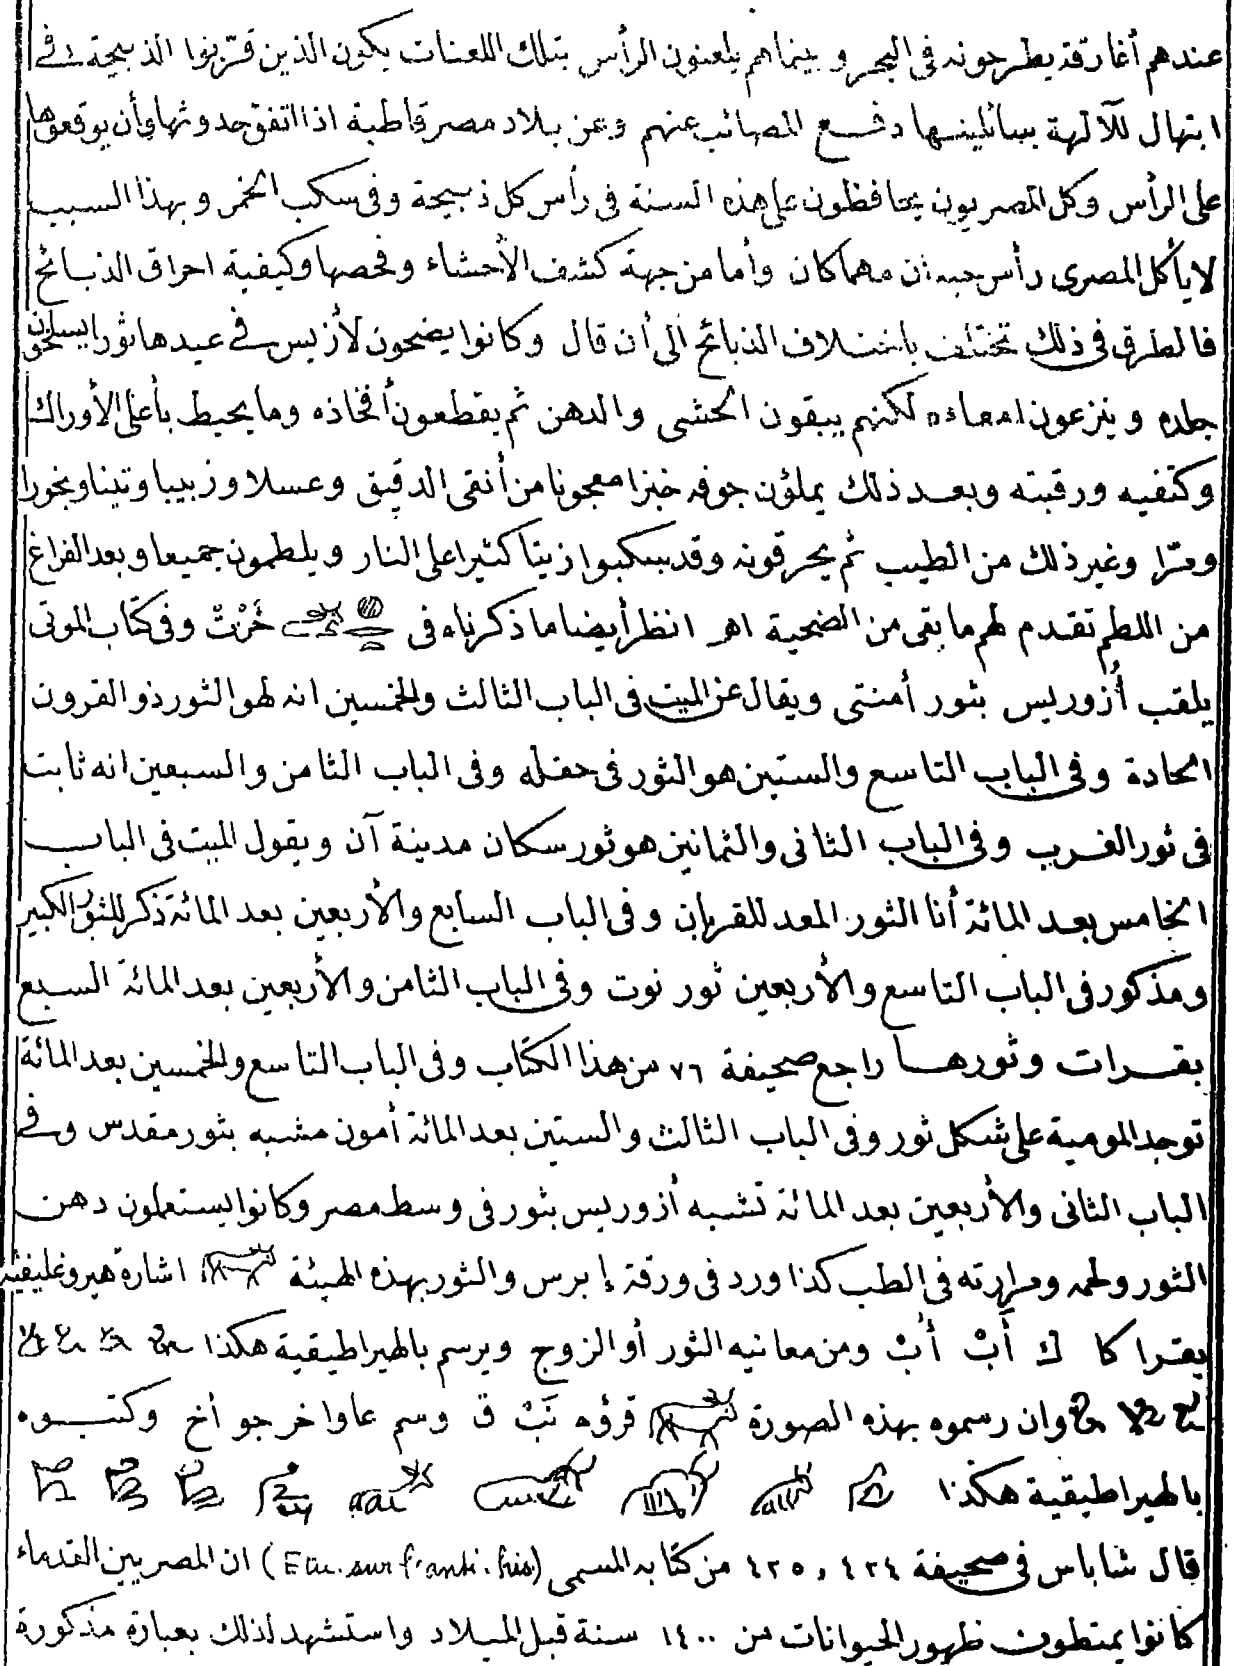 عندهم أغارقة يطرحونه في البحر و بينما هم يلعنون الرأس بتلك اللعنات يكون الذين قرّبوا الذبيحة في
ابتهال للآلهة يسائلينها دفع المصائب عنهم وعن بلاد مصر قاطبة اذا اتفق حدوثها وأن يوقعوها
على الرأس وكل المصريون يحافظون على هذه السنة في رأس كل ذبيحة وفي سكب الخمر وبهذا السبب
لا يأكل المصرى رأس حيوان مهما كان وأما من جهة كشف الأحشاء وفحصها وكيفية احراق الذبائح
فالطرق في ذلك تختلف باختلاف الذبائح الى أن قال وكانوا يضحون لأزيس في عيدها ثورا يسلخون
جلده وينزعون امعاءه لكنهم يبقون الحشى والدهن ثم يقطعون أفخاذه وما يحيط بأعلى الأوراك
وكتفيه ورقبته وبعد ذلك يملؤن جوفه خبزا معجونا من أنقى الدقيق وعسلا وزبيبا وتينا وبخورا
ومرّا وغير ذلك من الطيب ثم يحرقونه وقد سكبوا زيتا كثيرا على النار ويلطمون جميعا وبعد الفراغ
من اللطم تقدم لهم ما بقى من الضحية اهـ انظر أيضا ما ذكرناه في خَرْتْ وفي كتاب الموتى
يلقب أزوريس بثور أمنتى ويقال عن الميت في الباب الثالث والخمسين انه لهو الثور ذو القرون
الحادة وفي الباب التاسع والستين هو الثور في حقله وفي الباب الثامن والسبعين انه ثابت
في ثور الغرب وفي الباب الثاني والثمانين هو ثور سكان مدينة آن ويقول الميت في الباب
الخامس بعد المائة أنا الثور المعد للقربان وفي الباب السابع والأربعين بعد المائة ذكر للثور الكبير
ومذكور في الباب التاسع والأربعين ثور نوت وفي الباب الثامن والأربعين بعد المائة السبع
بقرات وثورها راجع صحيفة ٧٦ من هذا الكتاب وفي الباب التاسع والخمسين بعد المائة
توجد المومية على شكل ثور وفي الباب الثالث والستين بعد المائة أمون مشبه بثور مقدس وفي
الباب الثاني والأربعين بعد المائة تشبه أزوريس بثور في وسط مصر وكانوا يستعملون دهن
الثور ولحمه ومرارته في الطب كذا ورد في ورقة إبرس والثور بهذه الهيئة اشارة هيروغليفية
يقرا كا ك أَبْ أُبْ ومن معانيه الثور أو الزوج ويرسم بالهيراطيقية هكذا
وان رسموه بهذه الصورة قرؤه نَبْ ق وسم عاوا خر جو أخ وكتبوه
بالهيراطيقية هكذا
قال شاباس في صحيفة ٤٢٤ و ٤٢٥ من كتابه المسمى (Etu. sur l'anti. his) ان المصريين القدماء
كانوا يمتطون ظهور الحيوانات من ١٤٠٠ سنة قبل الميلاد واستشهد لذلك بعبارة مذكورة